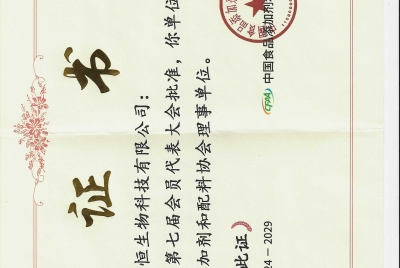 证书
恒生物科技有限公司：
第七届会员代表大会批准，你单位
加剂和配料协会理事单位。
此证
24 - 2029
CFAA 中国食品添加剂